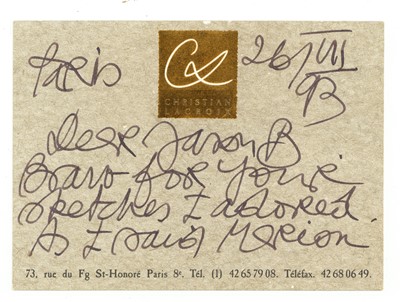 Paris
CL
CHRISTIAN
LACROIX
26/VII
93
Dear Jason B
Bravo for your
sketches I adored.
As I said Merion
73, rue du Fg St-Honoré Paris 8e. Tél. (1) 42 65 79 08. Téléfax. 42 68 06 49.